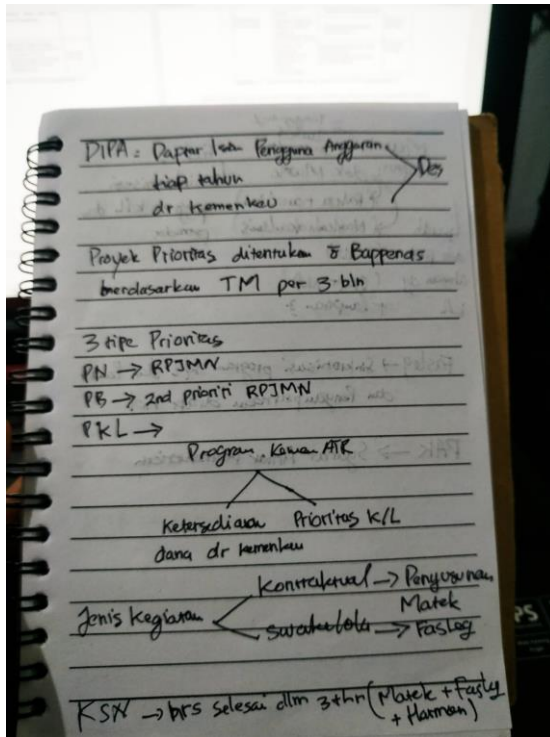 DIPA : Daptar Isn Pengguna Anggaran
tiap tahun
Des
dr kemenkau
Proyek Prioritas ditentukan Bappenas
berdasarkan TM per 3 bln
3 tipe Prioritas
PN → RPJMN
PB → 2nd prioriti RPJMN
PKL →
Program Kemen ATR
Ketersediaan Prioritas K/L
dana dr kemenkau
Kontraktual → Penyusunan
Matek
Jenis Kegiatan
Swakelola → Faslog
KSN → hrs selesai dlm 3 thn (Matek + Faslog
+ Harmon)
PS